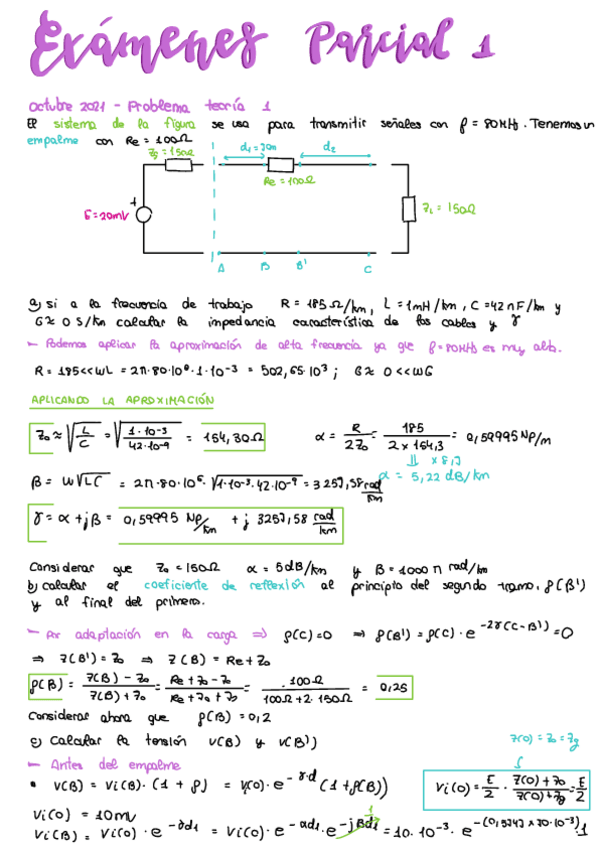 Exámenes Parcial 1
Octubre 2021 - Problema teoría 1
El sistema de la figura se usa para transmitir señales con f = 80MHz. Tenemos un
empalme con Re = 100Ω
Zg = 150Ω
d1 = 30m
d2
Re = 100Ω
E = 20mV
+
ZL = 150Ω
A B B' C
a) si a la frecuencia de trabajo R = 185 Ω/km, L = 1mH/km, C = 42 nF/km y
G ≈ 0 S/km calcular la impedancia característica de los cables y γ
- Podemos aplicar la aproximación de alta frecuencia ya que f = 80MHz es muy alto.
R = 185 << ωL = 2π·80·10⁶·1·10⁻³ = 502,65·10³ ; G ≈ 0 << ωG
APLICANDO LA APROXIMACIÓN
Z0 ≈ √(L/C) = √(1·10⁻³/42·10⁻⁹) = 154,30Ω
α = R/2Z0 = 185/(2×154,3) = 0,59995 Np/m
⇓ × 8,7
α = 5,22 dB/km
β = ω√LC = 2π·80·10⁶·√(1·10⁻³·42·10⁻⁹) = 3257,58 rad/km
γ = α + jβ = 0,59995 Np/km + j 3257,58 rad/km
Considerar que Z0 = 150Ω α = 5dB/km y β = 1000 π rad/km
b) calcular el coeficiente de reflexión al principio del segundo tramo, ρ(B')
y al final del primero.
- Por adaptación en la carga ⇒ ρ(C)=0 ⇒ ρ(B') = ρ(C)·e^(-2γ(C-B')) = 0
⇒ Z(B') = Z0 ⇒ Z(B) = Re + Z0
ρ(B) = (Z(B) - Z0)/(Z(B) + Z0) = (Re + Z0 - Z0)/(Re + Z0 + Z0) = 100Ω/(100Ω + 2·150Ω) = 0,25
Considerar ahora que ρ(B) = 0,2
c) Calcular la tensión V(B) y V(B')
Z(0) = Z0 = Zg
- Antes del empalme
• V(B) = Vi(B)·(1 + ρ) = V(0)·e^(-γ·d) (1 + ρ(B))
Vi(0) = E/2 · (Z(0) + Z0)/(Z(0) + Zg) = E/2
Vi(0) = 10mV
1
Vi(B) = Vi(0)·e^(-γd1) = Vi(0)·e^(-αd1)·e^(-jβd1) = 10·10⁻³·e^(-(0,5747×30·10⁻³))·1